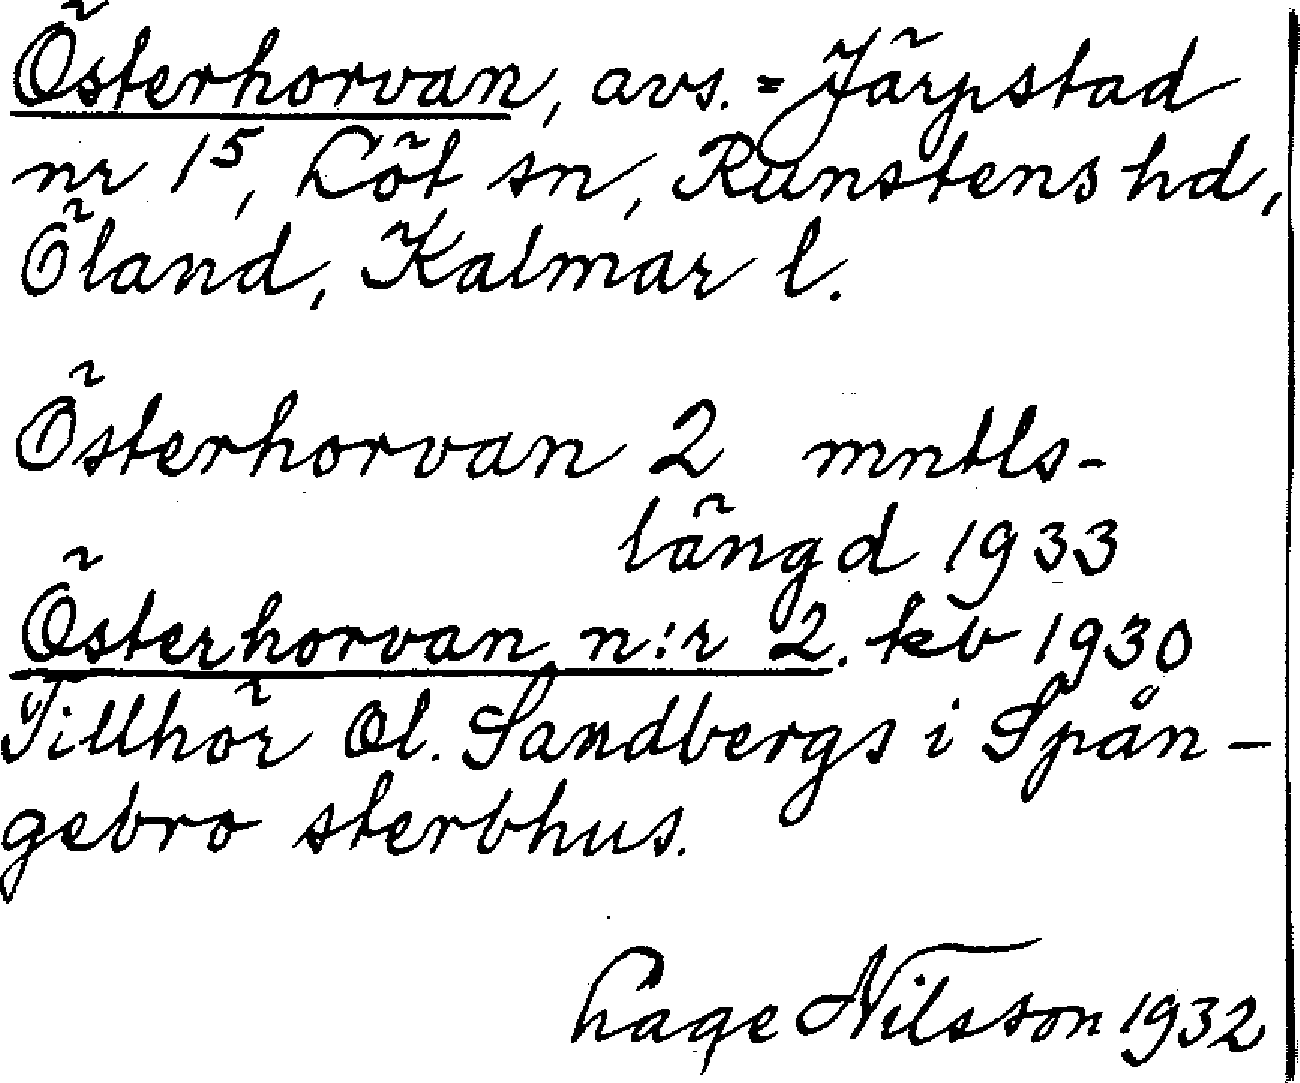 Österhorvan, avs. = Järpstad
nr 15, Löt sn, Runstens hd,
Öland, Kalmar l.
Österhorvan 2 mntls-
längd 1933
Österhorvan n:r 2. kb 1930
Tillhör Ol. Sandbergs i Spån-
gebro sterbhus.
Lage Nilsson 1932